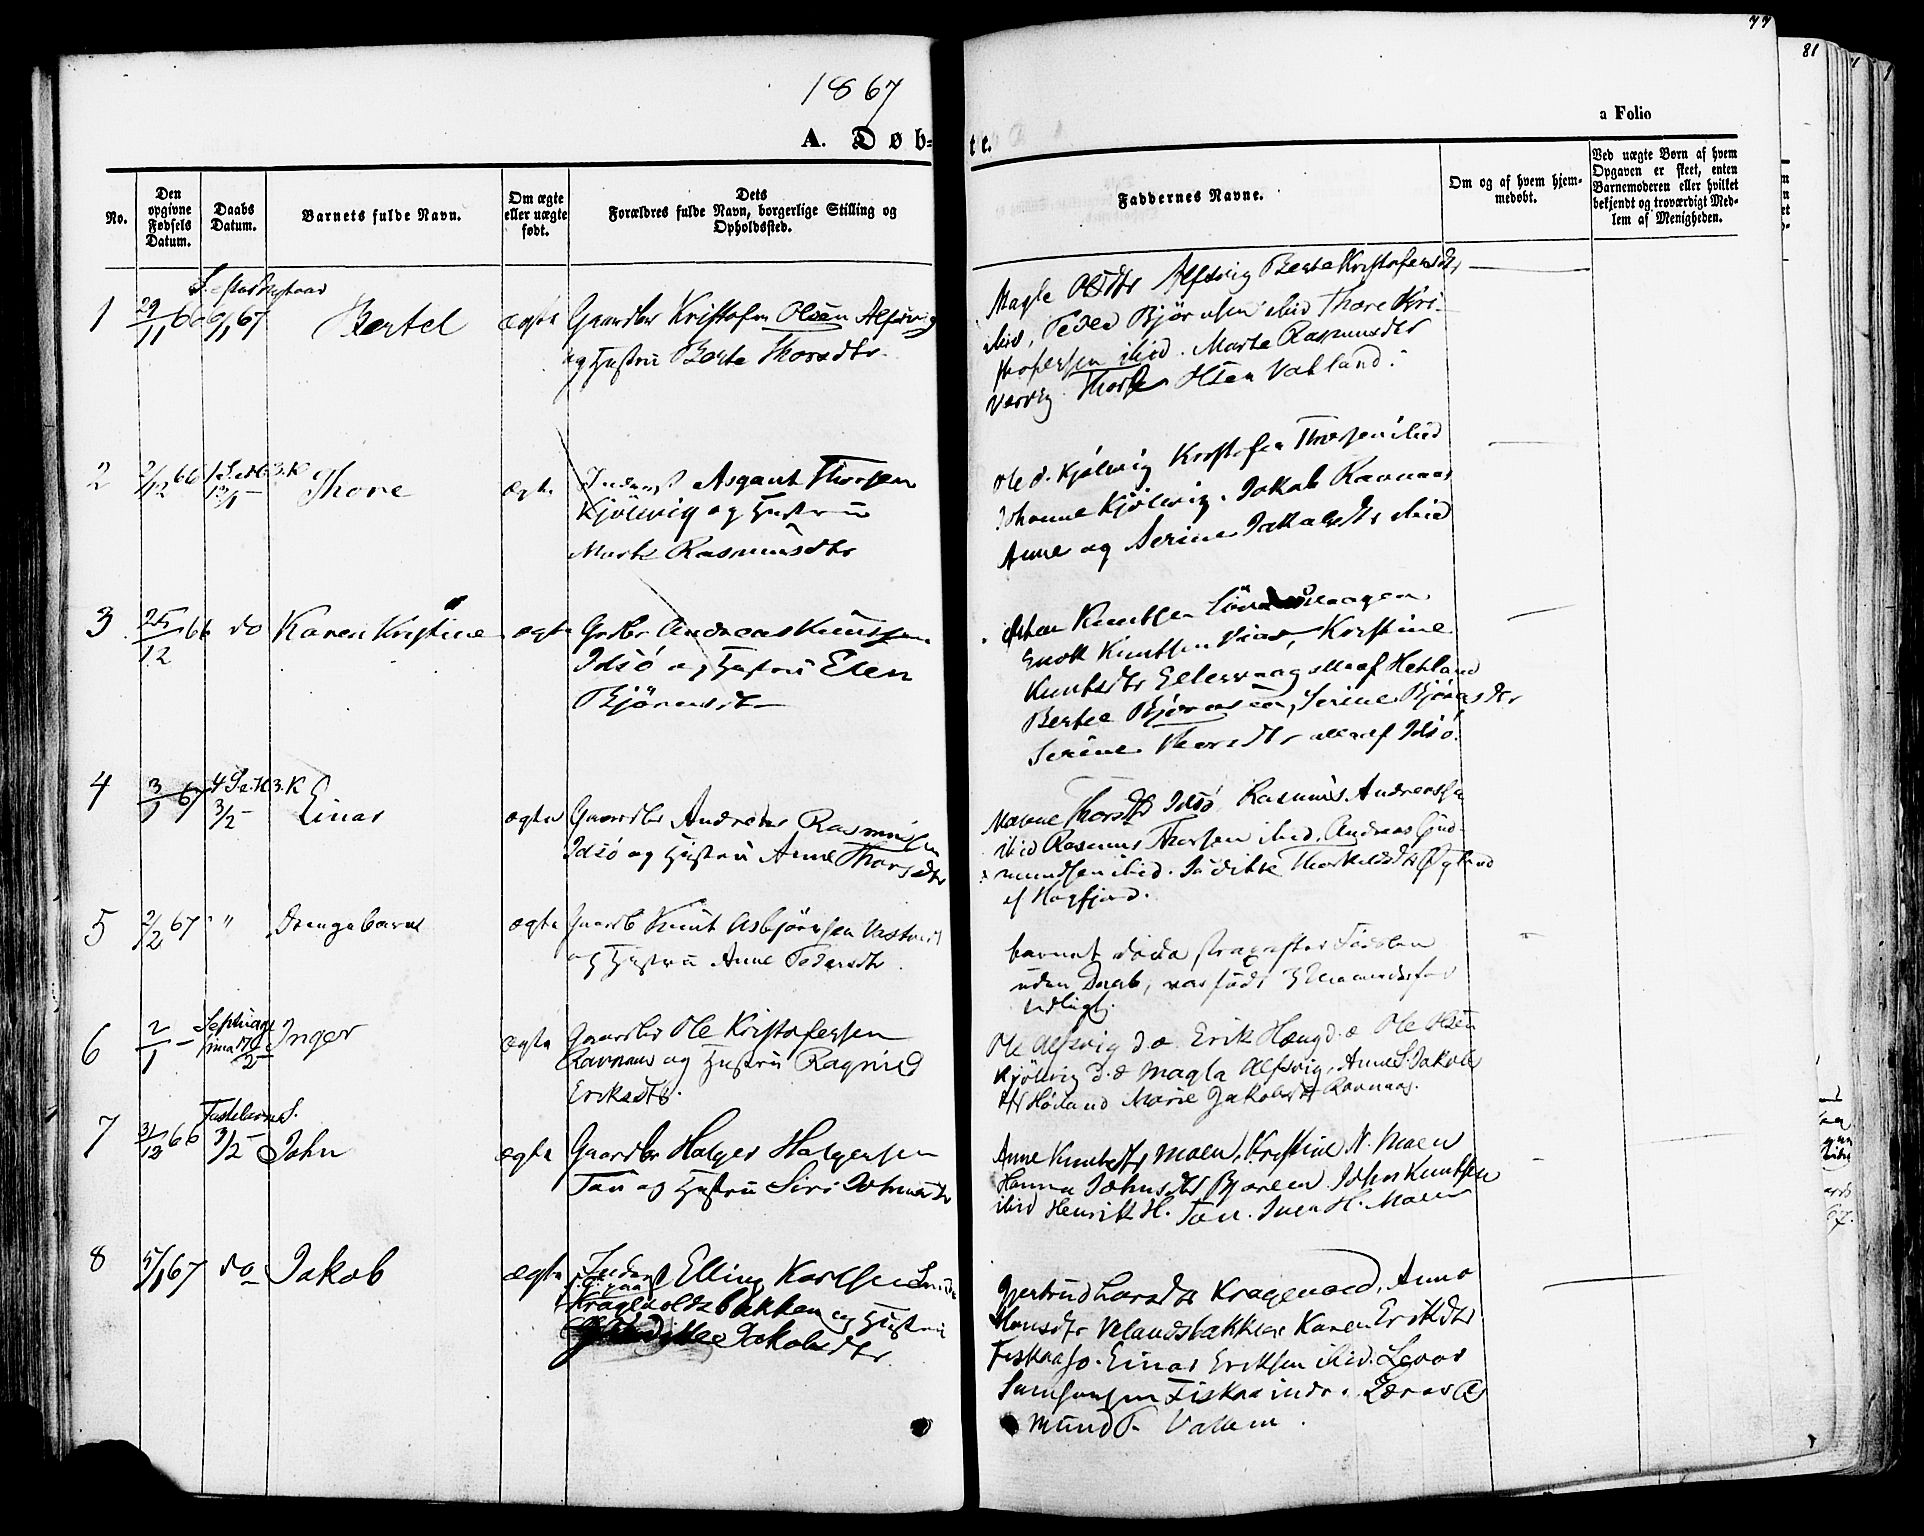 1867
77
81
A. Døb=
te.
a Folio
No.
Den opgivne Fødsels Datum.
Daabs Datum.
Barnets fulde Navn.
Om ægte eller uægte født.
Dets Forældres fulde Navn, borgerlige Stilling og Opholdssted.
Faddernes Navne.
Om og af hvem hjemmedøbt.
Ved uægte Børn af hvem Opgaven er skeet, enten Barnemoderen eller hvilket bekjendt og troværdigt Medlem af Menigheden.
1 29/11 66 6/1 67 Bertel ægte Gaardbr Kristofer Olsen Alfsvig
og Hustru Berte Thorsdtr.
Magle Olsdtr Alfsvig Berte Kristofersdtr
ibid, Peder Bjørnsen ibid Thore Kri-
stofersen ibid. Marte Rasmusdtr
Olsen Valland.
2 2/12 66 1 S. e. H. 3 K. 13/1 Thore ægte Inderst Asgaut Thorsen
Kjölevig og Hustru
Marte Rasmusdtr
Ole d. Kjölevig Kristofer Thorsen ibid
Johanne Kjölevig. Jakob Ravnaas
Anne og Serine Jakobsdtr ibid
3 25/12 66 do Karen Kristine ægte Grdbr Andreas Knutsen
Idsö og Hustru Elen
Bjørnsdtr
Knutsen
Enok Knutsen Kristine
Knutsdtr alle af Hetland
Bertel Bjørnsen, Serine Bjørnsdtr
Serine Thorsdtr alle af Idsö.
4 3/1 67 4 S. e. H. 3. K 3/2 Einar ægte Gaardbr Andreas Rasmussen
Idsö og Hustru Anne Thorsdtr
Thorsdtr Idsö Rasmus Andreassen
ibid Rasmus Thorsen ibid. Andreas Gud-
mundsen ibid. Thorkildsdtr
af Høgsfjord.
5 2/2 67 " Drengebarn ægte Gaardb Knut Asbjörnsen
og Hustru Anne Pedersdtr
barnet døde strax efter Födslen
uden Daab, var födt 3 Maaneder for
tidligt.
6 2/1 Septuage
sima 17/2 Inger ægte Gaardbr Ole Kristofersen
Ravnaas og Hustru Ragnild
Eriksdtr.
Ole Alfsvig d. æ. Erik Haug d. æ Ole Olsen
Kjölevig d. æ Magla Alfsvig, Anne S. Jakobs
dtr Höiland Marie Jakobsdtr Ravnaas.
7 31/12 66 Fastelavns S. 3/2 John ægte Gaardbr Holger Holgersen
Tau og Hustru Siri Johnsdtr
Anne Knutsdtr Moen, Kristine N. Moen
Hanna Johnsdtr Bjøreim John Knutsen
ibid Henrik H. Tau. Iver H. Moen
8 5/1 67 do Jakob ægte Inderst Elling Karlsen
bakken og Hustru
Jakobsdtr
Gjertrud Larsdtr Anna
Hansdtr Velandsbakken Karen Eriksdtr
Fiskaa. Einar Eriksen ibid.
Samsonsen Fiskaa indre. Lærer As
mund T. Valem.